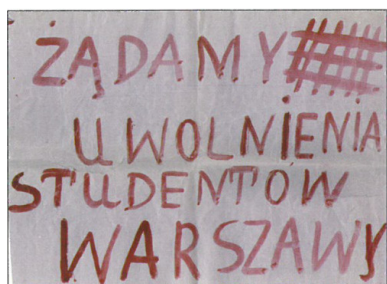 ŻĄDAMY
UWOLNIENIA
STUDENTÓW
WARSZAWY